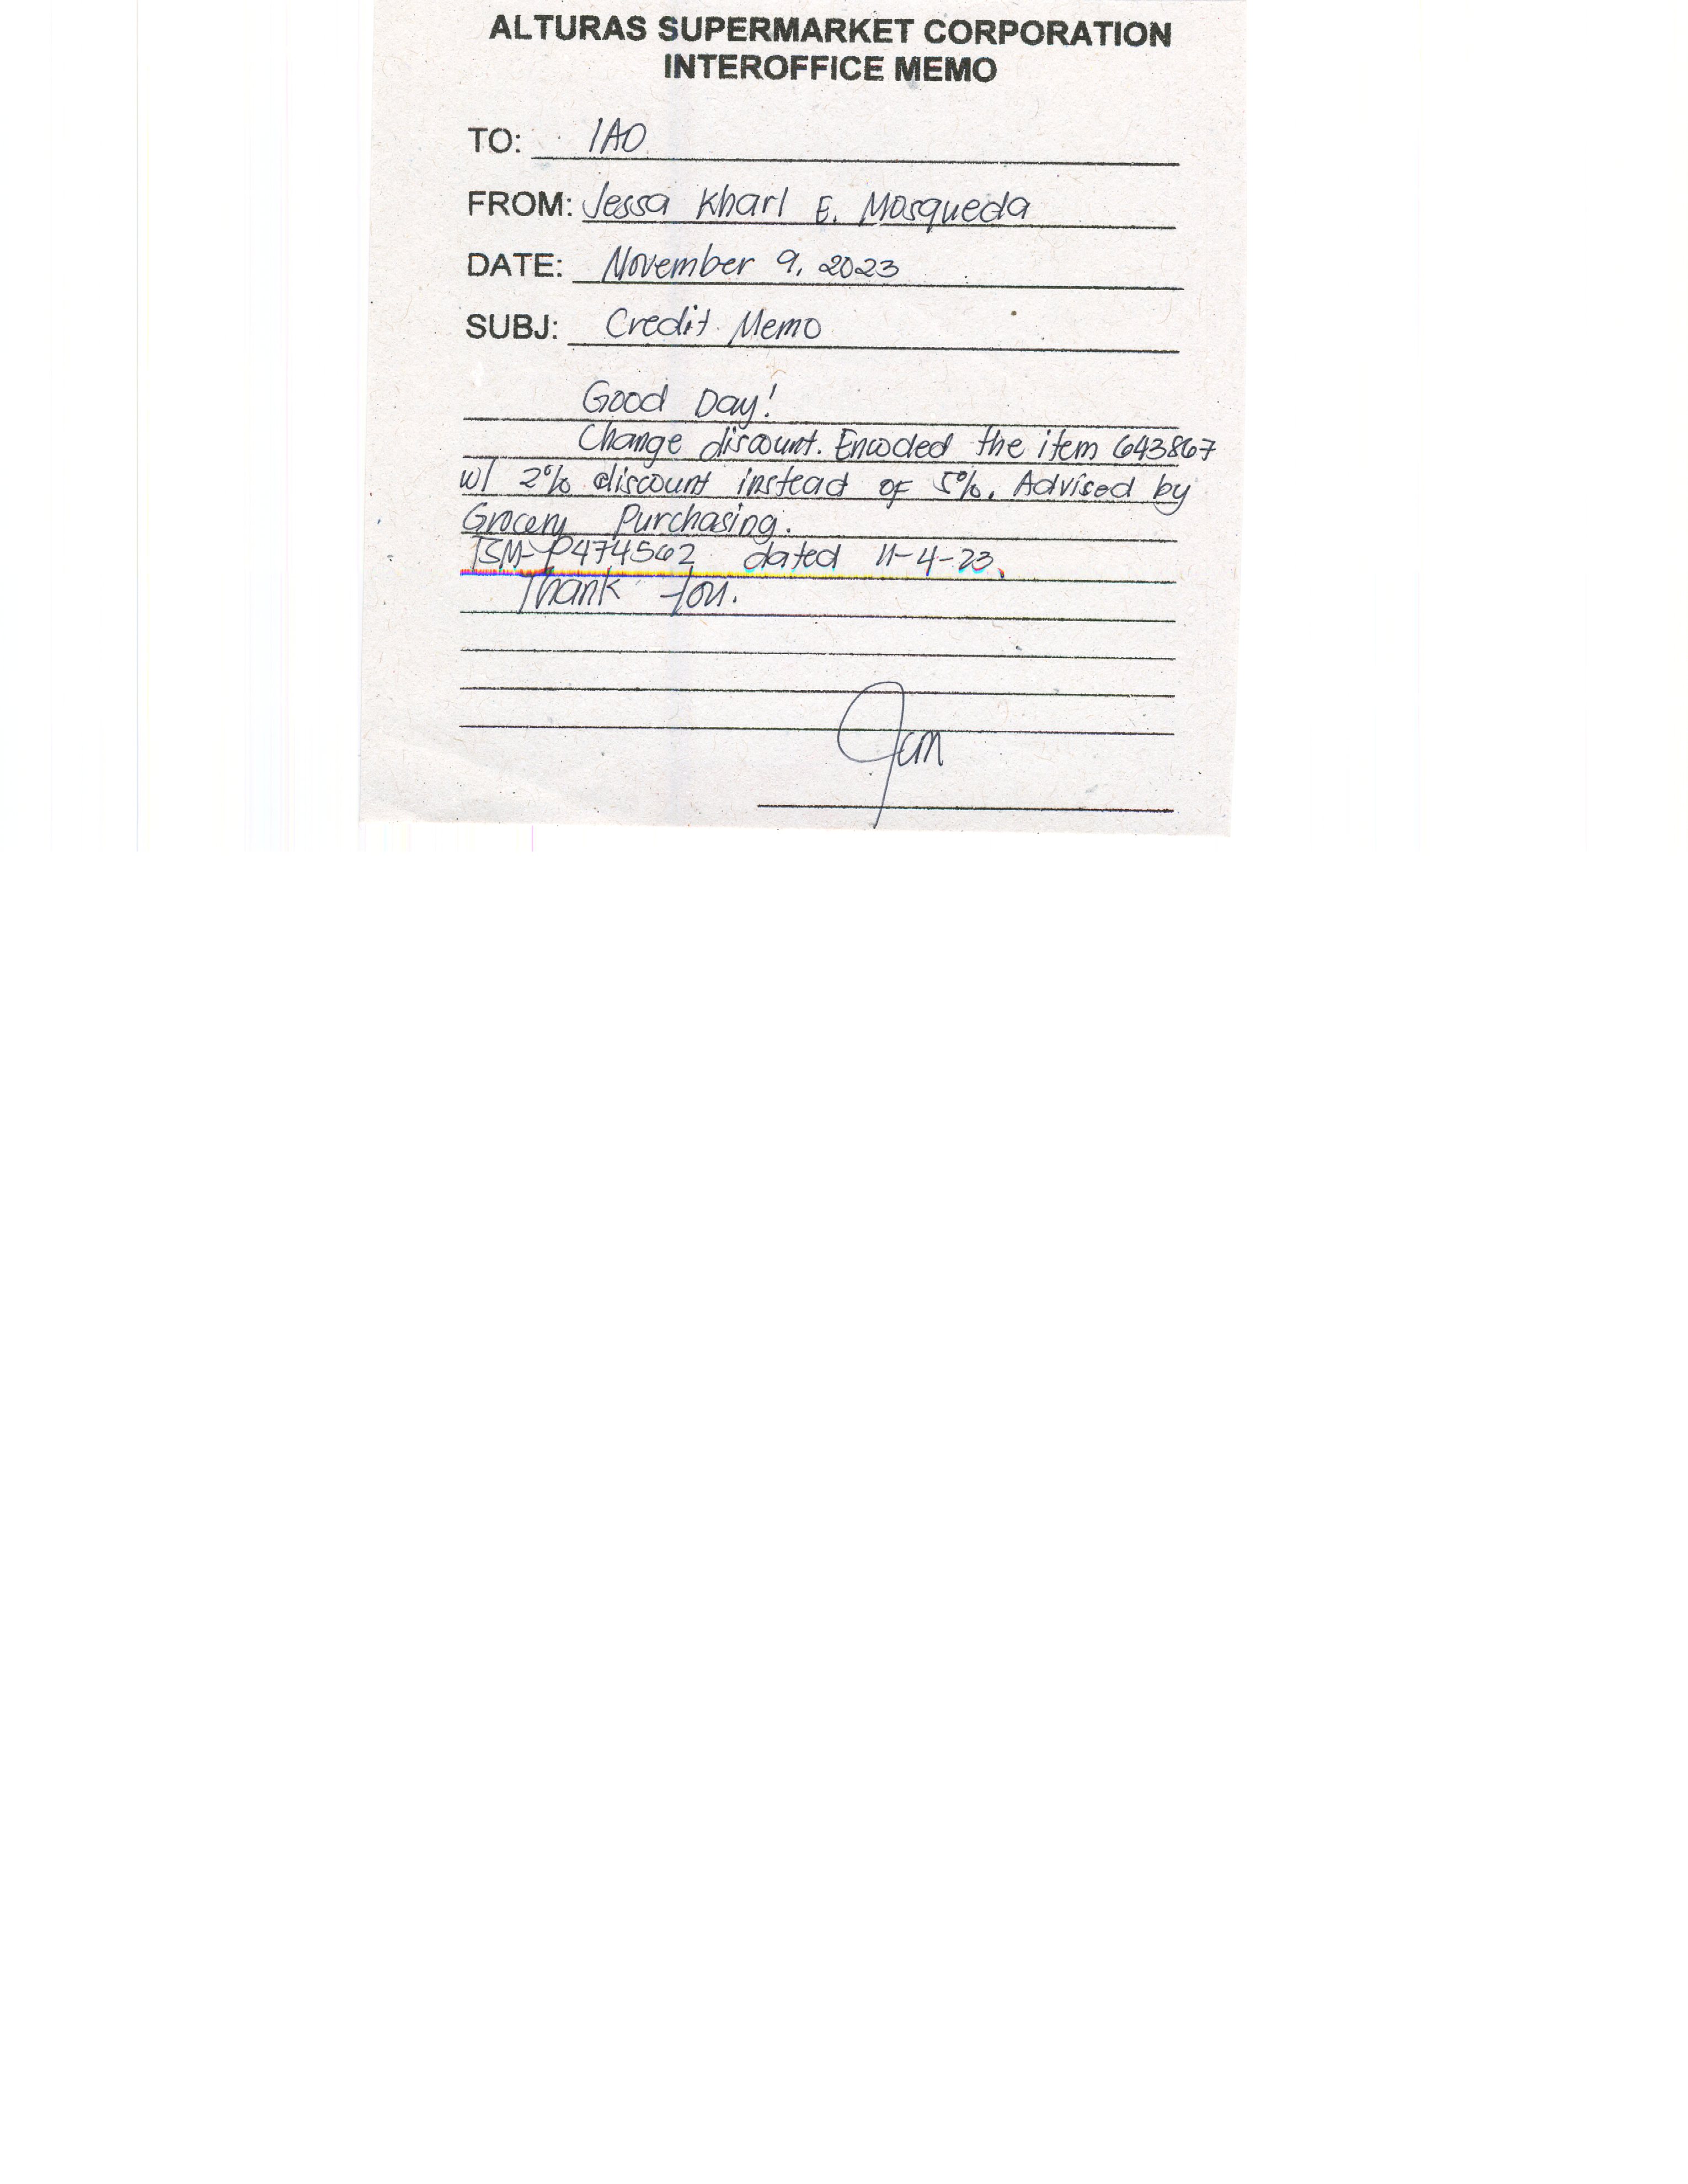 ALTURAS SUPERMARKET CORPORATION
INTEROFFICE MEMO
TO: IAO
FROM: Jessa Kharl E. Mosqueda
DATE: November 9, 2023
SUBJ: Credit Memo
Good Day!
Change discount. Encoded the item 643867
w/ 2% discount instead of 5%. Advised by
Grocery Purchasing.
TSM-P474562 dated 11-4-23.
Thank You.